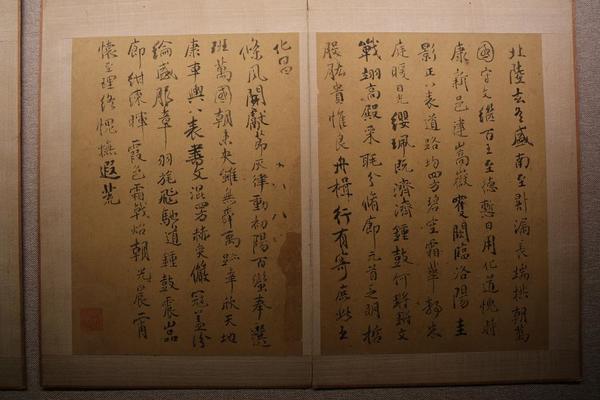 北陸玄冬盛南至晷漏長端拱朝萬
國守文繼百王至德慙日用化道愧時
康新邑建嵩嶽雙闕臨洛陽圭
影正八表道路均四方碧空霜華靜朱
庭暖日光纓珮既濟濟鍾鼓何鍠鍠文
戟翊高殿采眊分脩廊元首乏明哲
股肱貴惟良舟楫行有寄庶此王
化昌
條風開獻節灰律動初陽百蠻奉遐
萬國朝未央雖無舜禹跡幸欣天地
康車輿八表書文混四方赫奕儼冠蓋紛
綸盛服章羽旄飛馳道鍾鼓震岩
廊組練輝霞色霜戟燿朝光晨宵
懷至理終愧撫遐荒